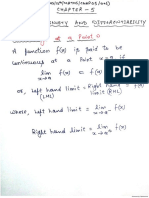 CHAPTER - 5
CONTINUITY AND DIFFERENTIABILITY
Continuity at a Point :-
A function f(x) is said to be
continuous at a Point x=a if
lim f(x) = f(a)
x→a
or, Left hand limit = Right hand limit = f(a)
(LHL) (RHL)
where, Left hand limit = lim f(x)
x→a⁻
Right hand limit = lim f(x)
x→a⁺